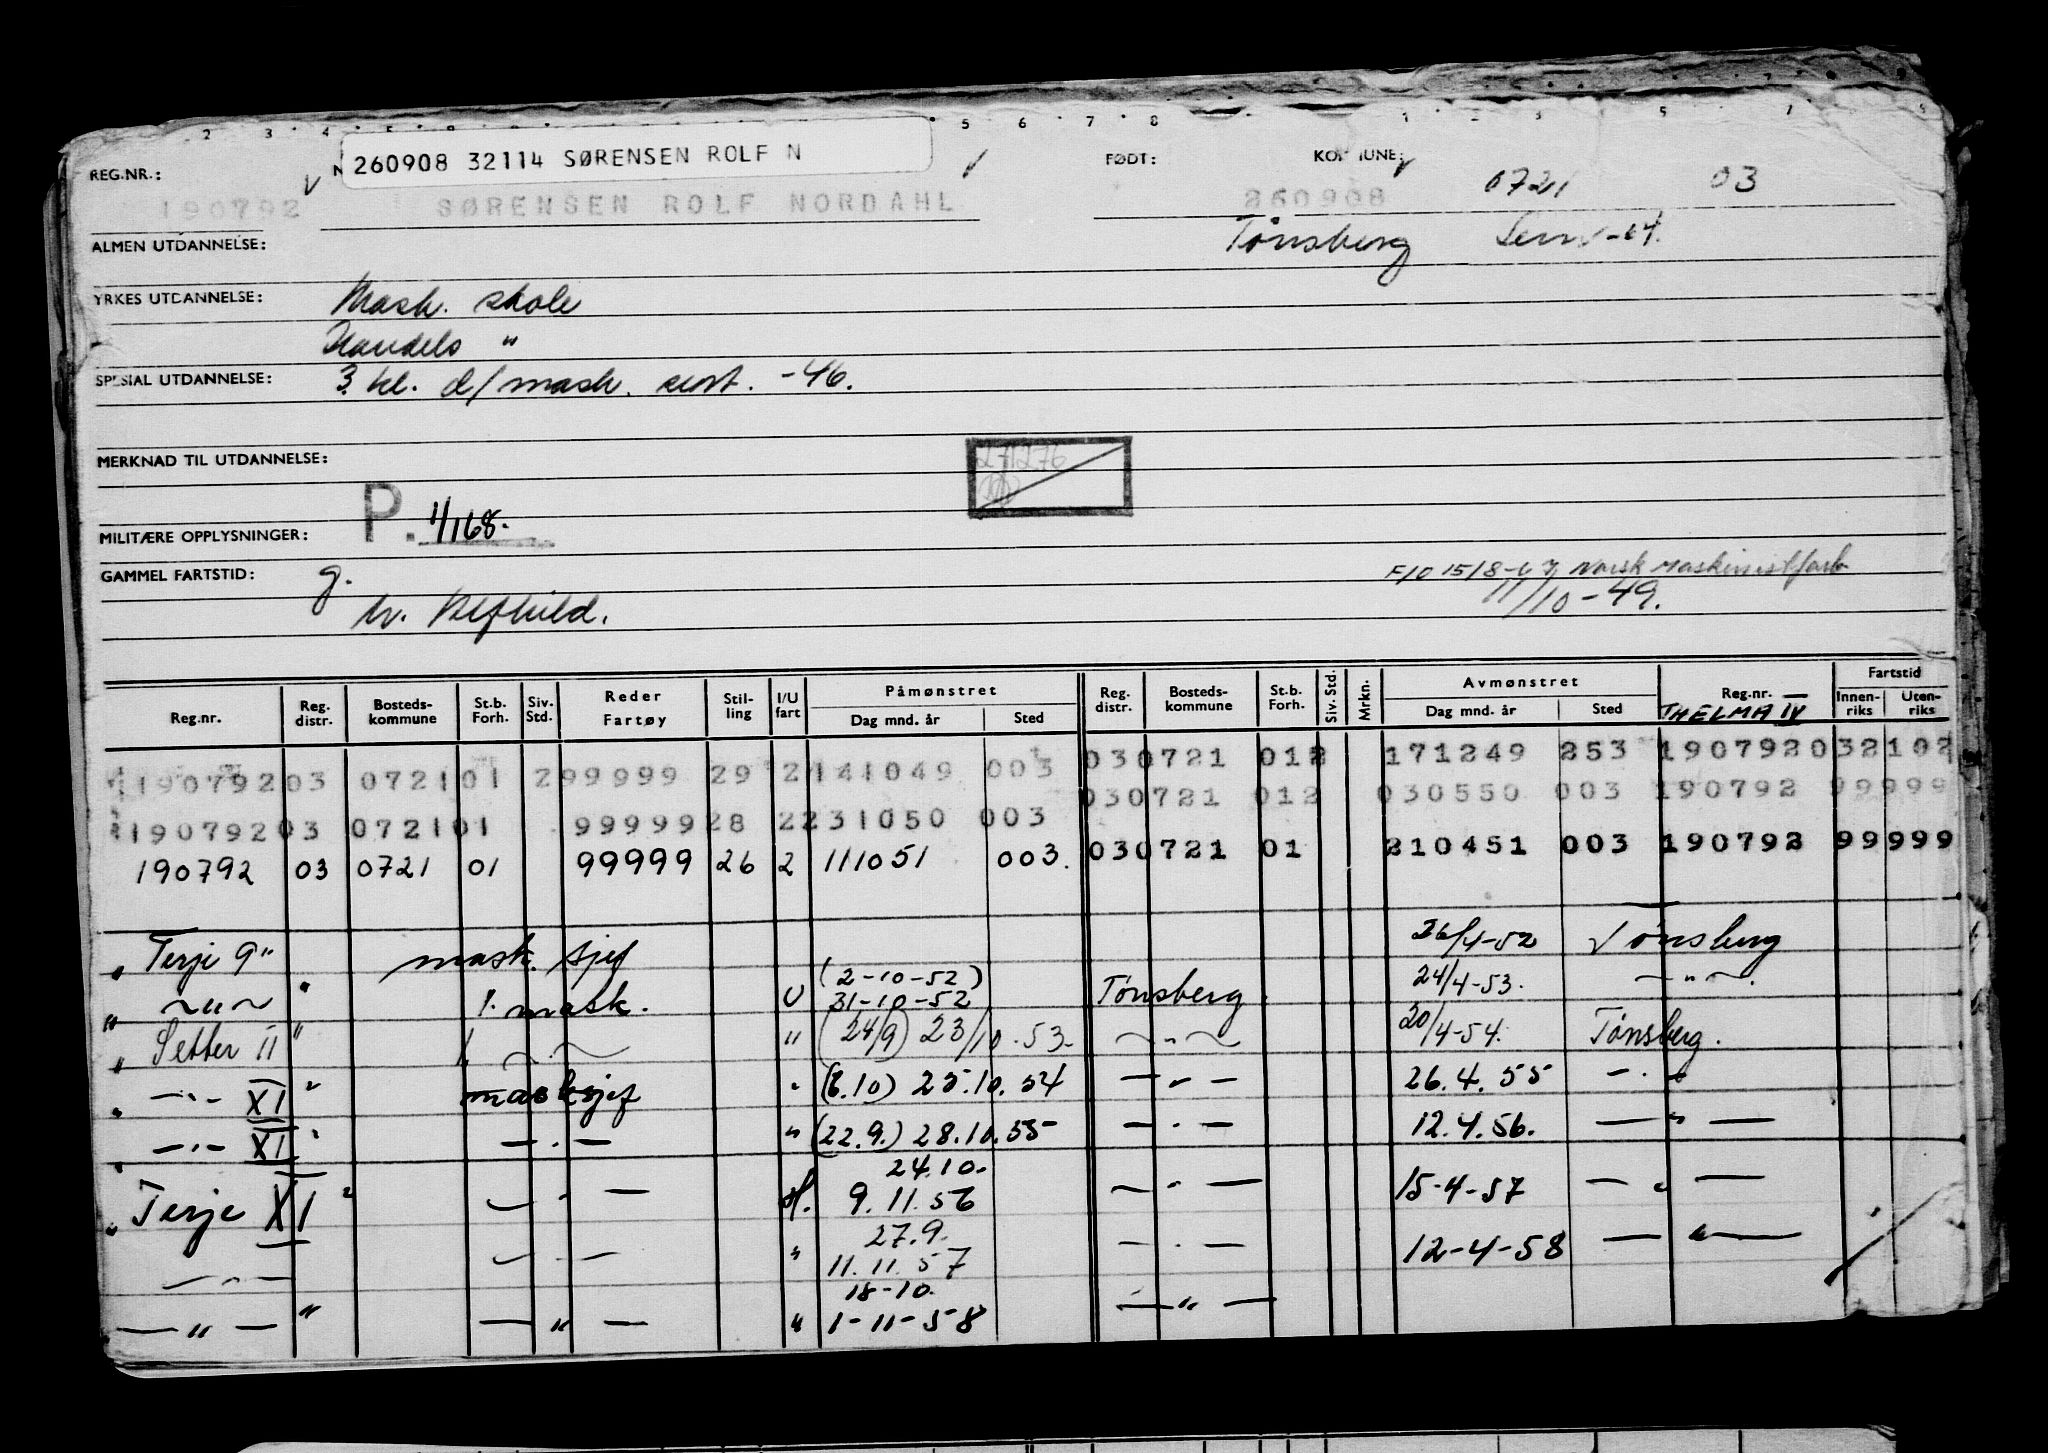 260908 32114 SØRENSEN ROLF N
REG.NR.: FØDT: KOMMUNE:
190792 SØRENSEN ROLF NORDAHL 260908 0721 03
ALMEN UTDANNELSE: Tønsberg
YRKES UTDANNELSE: Mask. skole
Handels "
SPESIAL UTDANNELSE: 3. kl. d/mask. cert. -46.
MERKNAD TIL UTDANNELSE: 271276
MILITÆRE OPPLYSNINGER: P. 1/168.
GAMMEL FARTSTID: g.
Norsk Maskinistforb
11/10-49.
Reg.nr. Reg. distr. Bosteds-kommune St.b. Forh. Siv. Std. Reder Fartøy Stil-ling I/U fart Påmønstret Dag mnd. år Sted Reg. distr. Bosteds-kommune St.b. Forh. Siv. Std. Mrkn. Avmønstret Dag mnd. år Sted Reg.nr. Fartstid Innen-riks Uten-riks
THELMA IV
190792 03 0721 01 2 99999 29 2 141049 003 03 0721 012 171249 253 190792 032102
03 0721 012 030550 003 190792 99999
190792 03 0721 01 99999 28 2 231050 003
03 0721 01 210451 003 190792 99999
190792 03 0721 01 99999 26 2 111051 003.
" Terje 9" mask. sjef 26/4-52 Tønsberg
" —"— " 1. mask. U (2-10-52) 31-10-52 Tønsberg 24/4-53. —"—
" Setter II " 1. —"— " (24/9) 23/10.53- —"— 20/4-54. Tønsberg.
" —"— XI " masksjef " (6.10) 25.10.54 —"— 26.4.55 —"
" —"— XI " —"— " (22.9.) 28.10.55 —"— 12.4.56. —"—
24.10.
" Terje XI " —"— 9.11.56 —"— 15-4-57 —"—
27.9.
—"— —"— " 11.11.57 —"— 12-4-58 —"—
18-10.
—"— " —"— " 1-11-58 —"—